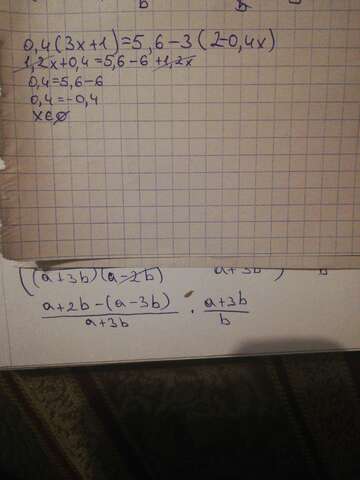 0,4(3x+1)=5,6-3(2-0,4x)
1,2x+0,4=5,6-6+1,2x
0,4=5,6-6
0,4=-0,4
x∈∅
((a+3b)(a-2b) a+3b ) b
a+2b-(a-3b) / a+3b · a+3b / b